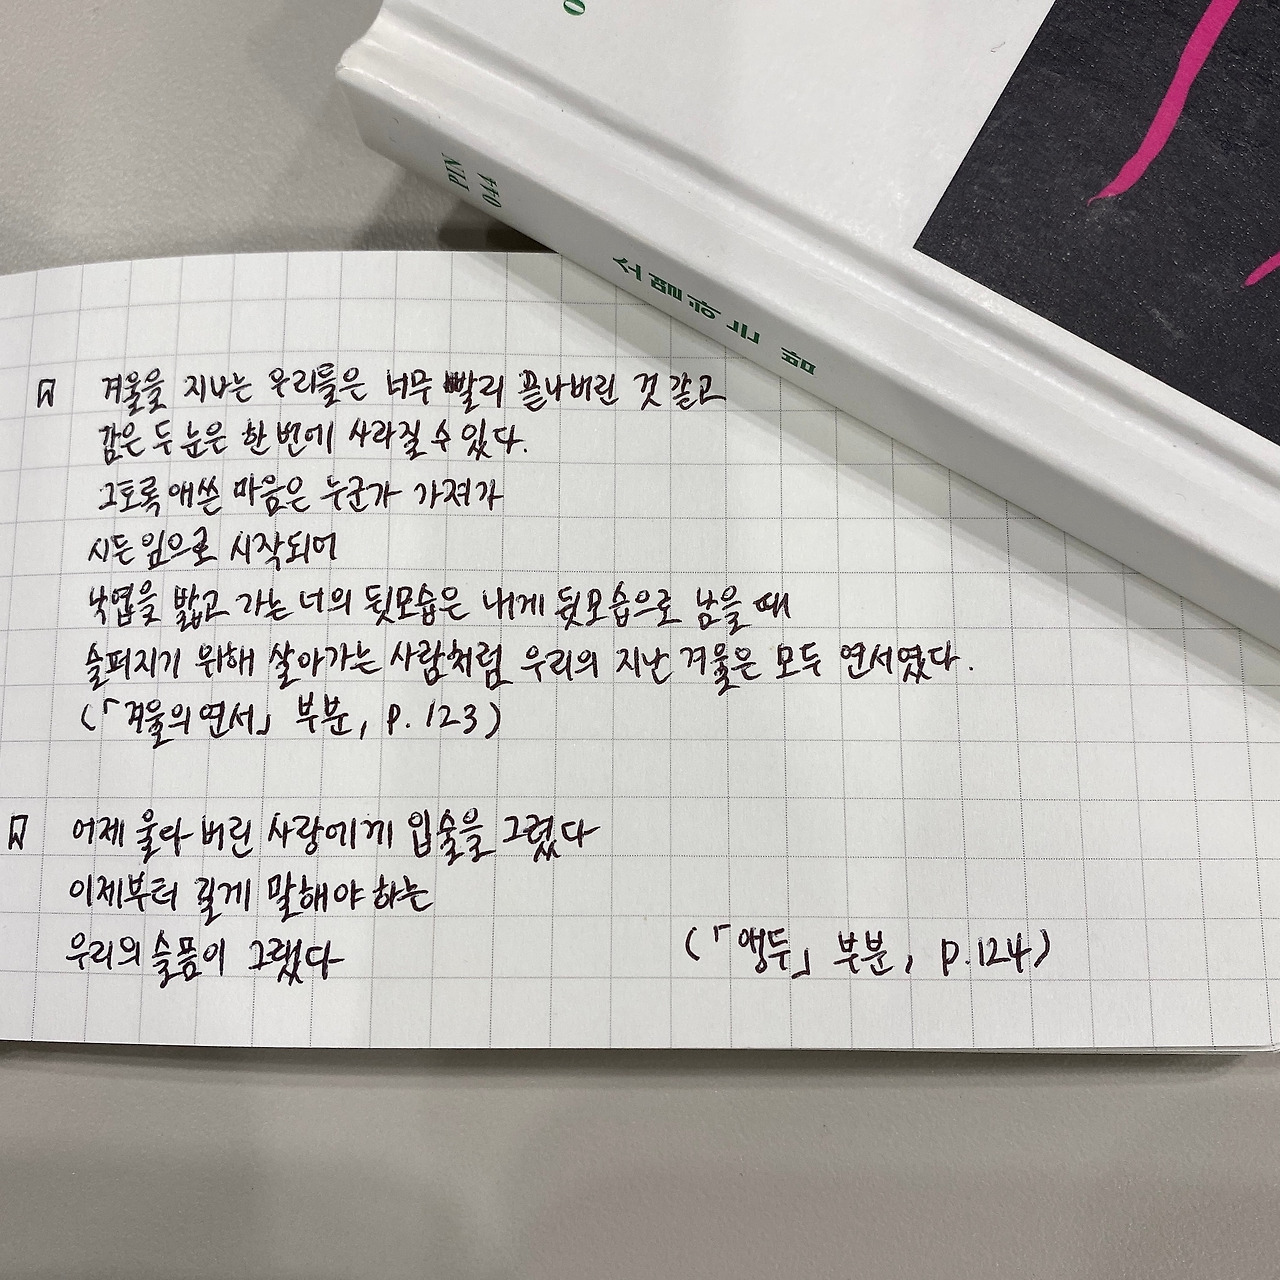 PIN
044
소멸하는 밤
겨울을 지나는 우리들은 너무 빨리 끝나버린 것 같고
감은 두 눈은 한 번에 사라질 수 있다.
그토록 애쓴 마음은 누군가 가져가
시든 잎으로 시작되어
낙엽을 밟고 가는 너의 뒷모습은 내게 뒷모습으로 남을 때
슬퍼지기 위해 살아가는 사람처럼 우리의 지난 겨울은 모두 연서였다.
(「겨울의 연서」 부분, p. 123)
어제 울다 버린 사랑에게 입술을 그렸다
이제부터 길게 말해야 하는
우리의 슬픔이 그랬다 (「앵두」 부분, p.124)